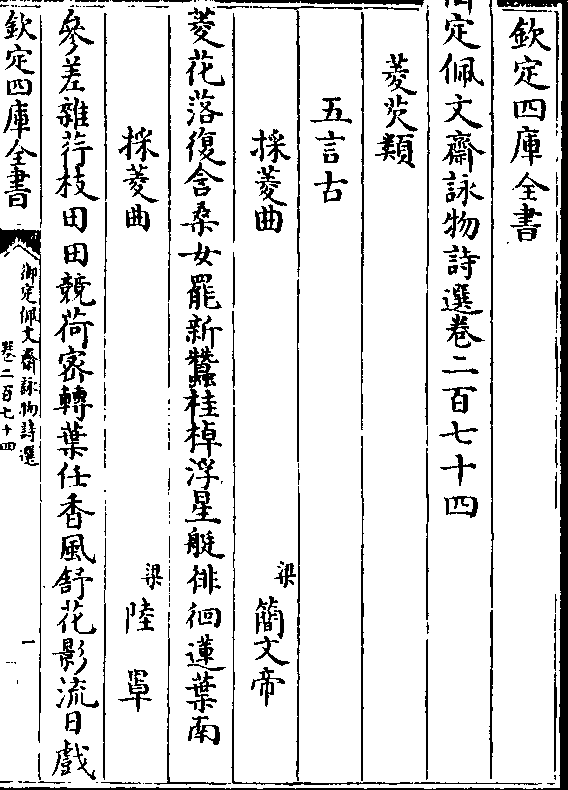 欽定四庫全書
定佩文齋詠物詩選卷二百七十四
菱芡類
五言古
採菱曲 梁 簡文帝
菱花落復含桑女罷新蠶桂棹浮星艇徘徊蓮葉南
採菱曲 梁 陸罩
參差雜荇枝田田競荷密轉葉任香風舒花影流日戲
欽定四庫全書
御定佩文齋詠物詩選
卷二百七十四
一